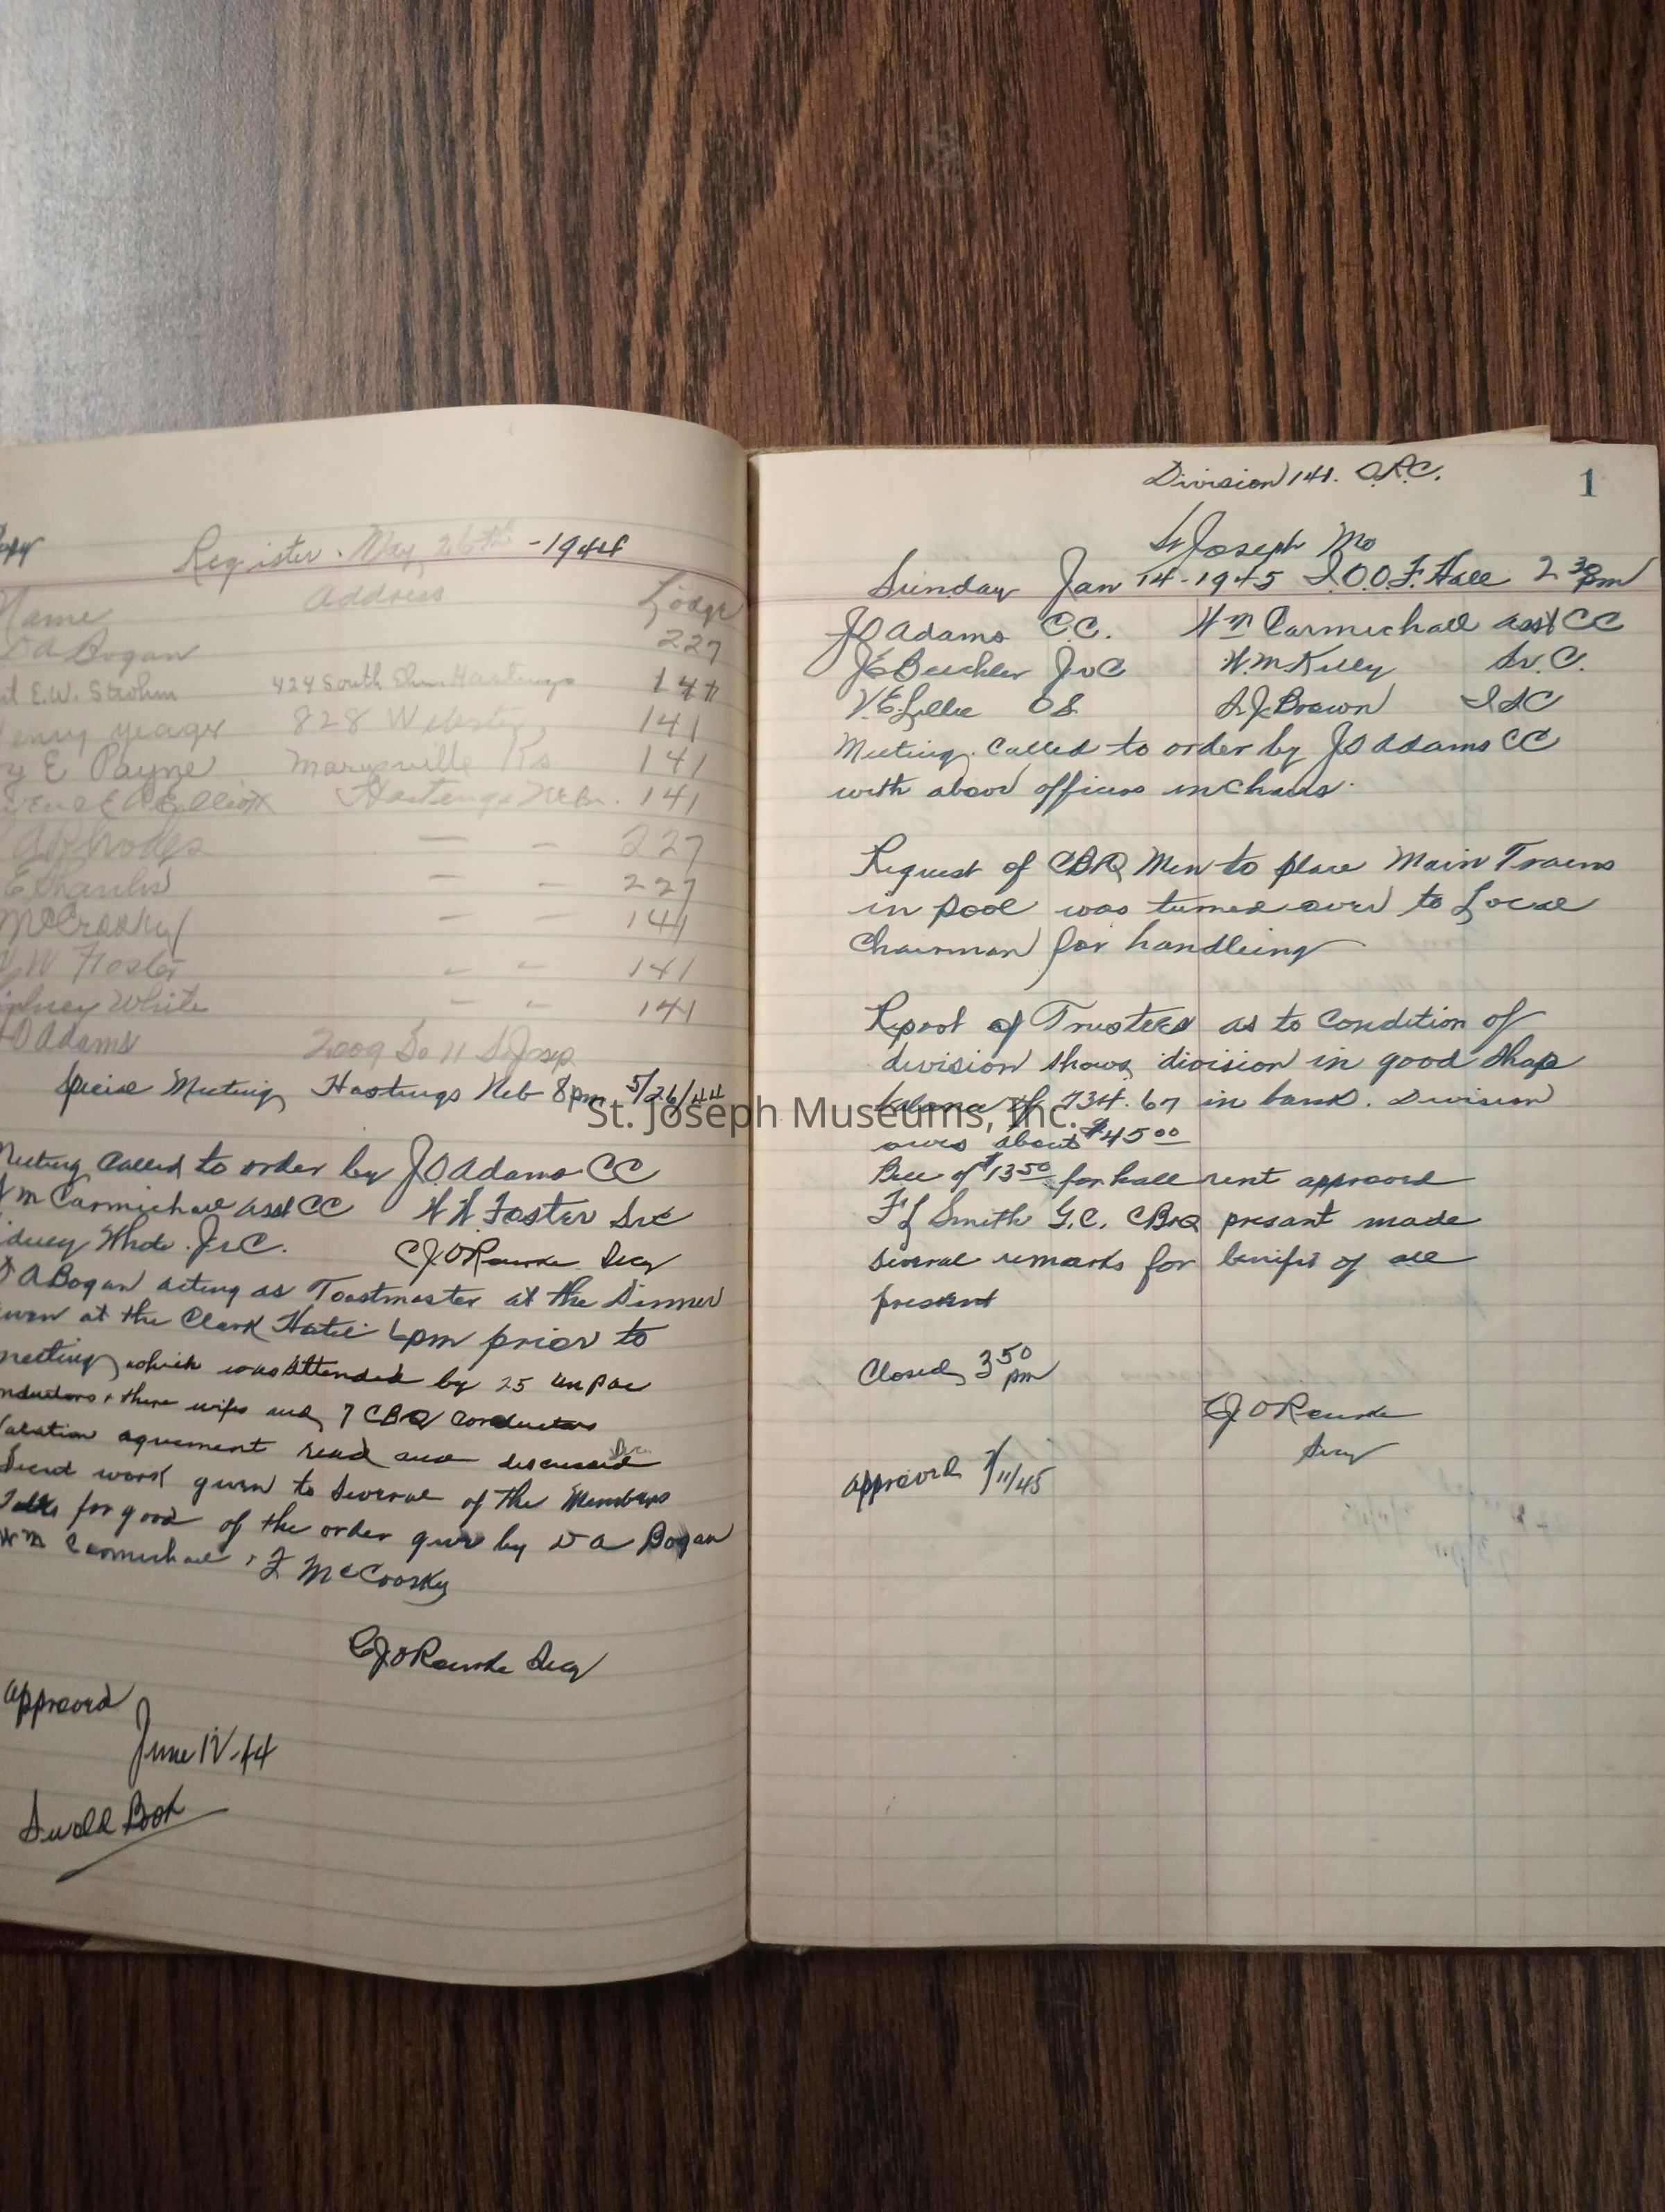 Copy
Register. May 26th - 1944
Name Address Lodge
D A Bogan 227
E.W. Strohm 424 South Elm Hastings 141
Henry Yeager 828 Webster 141
E Payne Marysville Ks 141
Elliott Hastings Nebr. 141
Rhodes — — 227
E Charles — — 227
McCrosky — — 141
W Foster " " 141
Sidney White — " 141
J O Adams 2009 So 11 St Josep
Special Meeting Hastings Neb 8pm 5/26/44
Meeting Called to order by J.O. Adams CC
Wm Carmichael asst CC W.W. Foster Sr C
Sidney White. Jr C. C J O Rourke Secy
D A Bogan acting as Toastmaster at the Dinner
given at the Clark Hotel 6pm prior to
meeting, which was attended by 25 Un Pac
Conductors & there wifes and 7 CB&Q Conductors
Vacation agreement read and discussed
Secret work given to several of the Members
Talks for good of the order give by D A Bogan
Wm Carmichael & F McCrosky
C J O Rourke Secy
approved
June 12-44
Sweld Book
Division 141. O.R.C. 1
St Joseph Mo
Sunday Jan 14-1945 I.O.O.F. Hall 2 30 pm
J O Adams C.C. Wm Carmichael asst CC
J E Buchler Jr C W.M Kelly Sr. C.
V.E. Lillie O S S J Brown I S C
Meeting Called to order by J O Adams CC
with above officers in Chairs.
Request of CB&Q Men to place Main Trains
in pool was turned over to Local
Chairman for handleing
Report of Trustees as to Condition of
division shows division in good shape
balance of 734.67 in bank. Division
owes about $45 00
Bill of $13 50 for hall rent approved
F L Smith G.C. CB&Q presant made
several remarks for benifit of all
present
Closed 3 50 pm
C J O Rourke
Secy
approved 2/11/45
St. Joseph Museums, Inc.